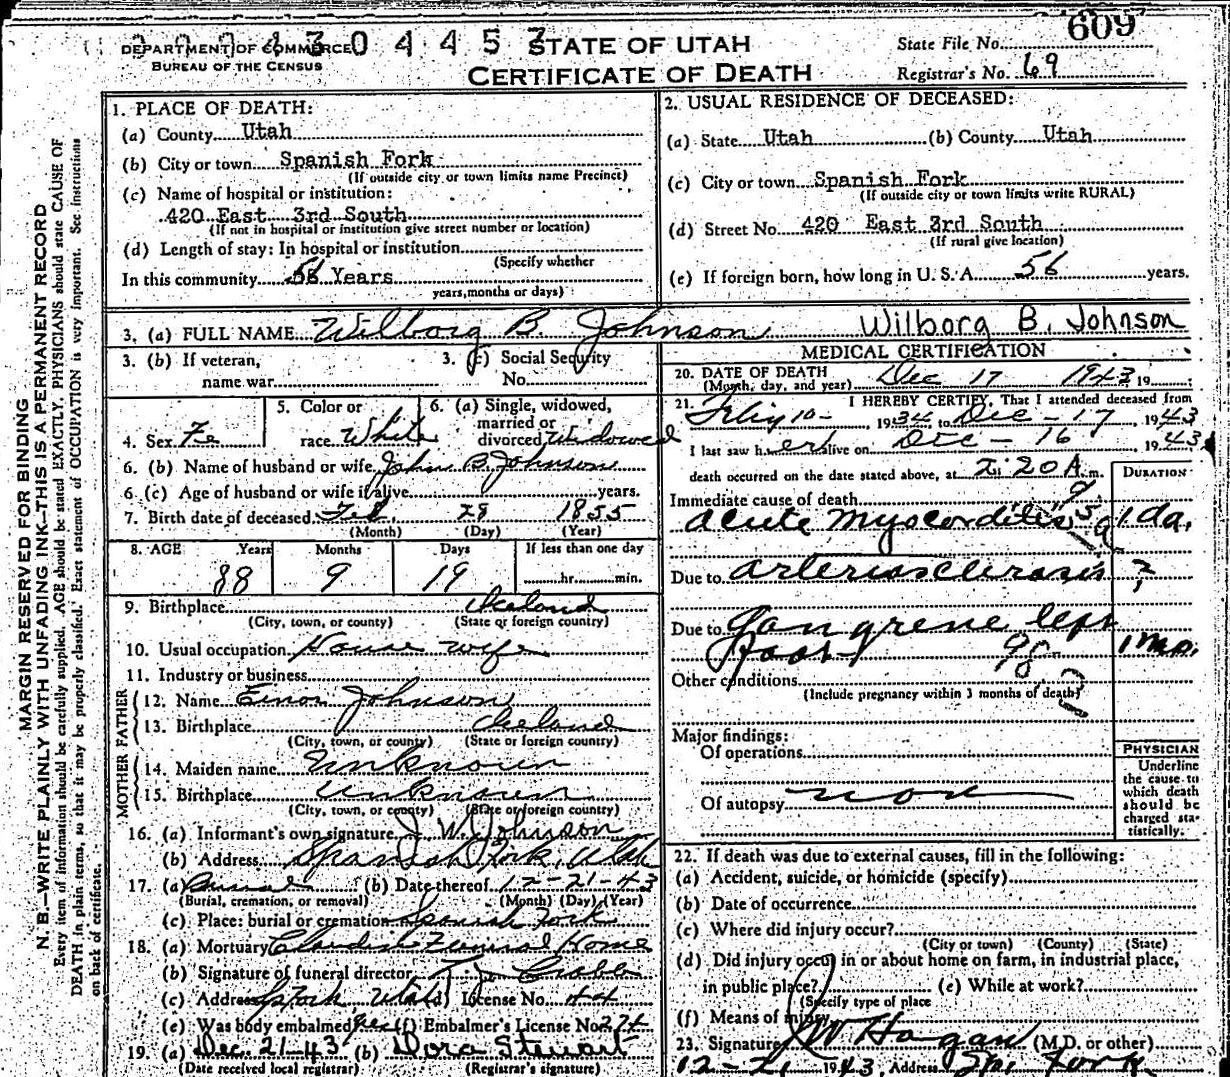 609
DEPARTMENT OF COMMERCE
BUREAU OF THE CENSUS
STATE OF UTAH
CERTIFICATE OF DEATH
State File No.
Registrar's No. 69
MARGIN RESERVED FOR BINDING
N. B.—WRITE PLAINLY WITH UNFADING INK—THIS IS A PERMANENT RECORD
Every item of information should be carefully supplied. AGE should be stated EXACTLY. PHYSICIANS should state CAUSE OF
DEATH in plain terms, so that it may be properly classified. Exact statement of OCCUPATION is very important. See instructions
on back of certificate.
1. PLACE OF DEATH:
(a) County Utah
(b) City or town Spanish Fork
(If outside city or town limits name Precinct)
(c) Name of hospital or institution:
420 East 3rd South
(If not in hospital or institution give street number or location)
(d) Length of stay: In hospital or institution
(Specify whether
In this community 56 Years
years, months or days)
2. USUAL RESIDENCE OF DECEASED:
(a) State Utah (b) County Utah
(c) City or town Spanish Fork
(If outside city or town limits write RURAL)
(d) Street No. 420 East 3rd South
(If rural give location)
(e) If foreign born, how long in U. S. A. 56 years.
3. (a) FULL NAME Wilborg B. Johnson Wilborg B. Johnson
3. (b) If veteran,
name war
3. (c) Social Security
No.
4. Sex Fe
5. Color or
race White
6. (a) Single, widowed,
married or
divorced Widowed
6. (b) Name of husband or wife John B. Johnson
6. (c) Age of husband or wife if alive years.
7. Birth date of deceased Feb. 28 1855
(Month) (Day) (Year)
8. AGE Years Months Days If less than one day
88 9 19 hr. min.
9. Birthplace Iceland
(City, town, or county) (State or foreign country)
10. Usual occupation House wife
11. Industry or business
FATHER
12. Name Einor Johnson
13. Birthplace Iceland
(City, town, or county) (State or foreign country)
MOTHER
14. Maiden name Unknown
15. Birthplace Unknown
(City, town, or county) (State or foreign country)
16. (a) Informant's own signature J. W. Johnson
(b) Address Spanish Fork, Utah
17. (a) Burial (b) Date thereof 12-21-43
(Burial, cremation, or removal) (Month) (Day) (Year)
(c) Place: burial or cremation Spanish Fork
18. (a) Mortuary Claudin Funeral Home
(b) Signature of funeral director
(c) Address Sp Fork Utah (d) License No. 44
(e) Was body embalmed yes (f) Embalmer's License No. 274
19. (a) Dec. 21-43 (b) Dora Stewart
(Date received local registrar) (Registrar's signature)
MEDICAL CERTIFICATION
20. DATE OF DEATH
(Month, day, and year) Dec 17 1943 19
21. I HEREBY CERTIFY, That I attended deceased from
10- 1934 to Dec-17, 1943
I last saw her alive on Dec-16, 1943
death occurred on the date stated above, at 2:20 A. m.
DURATION
Immediate cause of death
acute myocorditis 1 da.
Due to arteriosclerosis ?
Due to Gangrene left
Foot 1 mo.
Other conditions
(Include pregnancy within 3 months of death)
Major findings:
Of operations
Of autopsy non
PHYSICIAN
Underline
the cause to
which death
should be
charged sta-
tistically.
22. If death was due to external causes, fill in the following:
(a) Accident, suicide, or homicide (specify)
(b) Date of occurrence
(c) Where did injury occur?
(City or town) (County) (State)
(d) Did injury occur in or about home on farm, in industrial place,
in public place? (e) While at work?
(Specify type of place
(f) Means of injury
23. Signature JW Hagan (M.D. or other)
12-21 1943, Address Sp. Fork